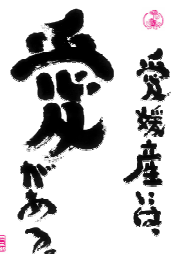 愛媛産には、
愛がある。